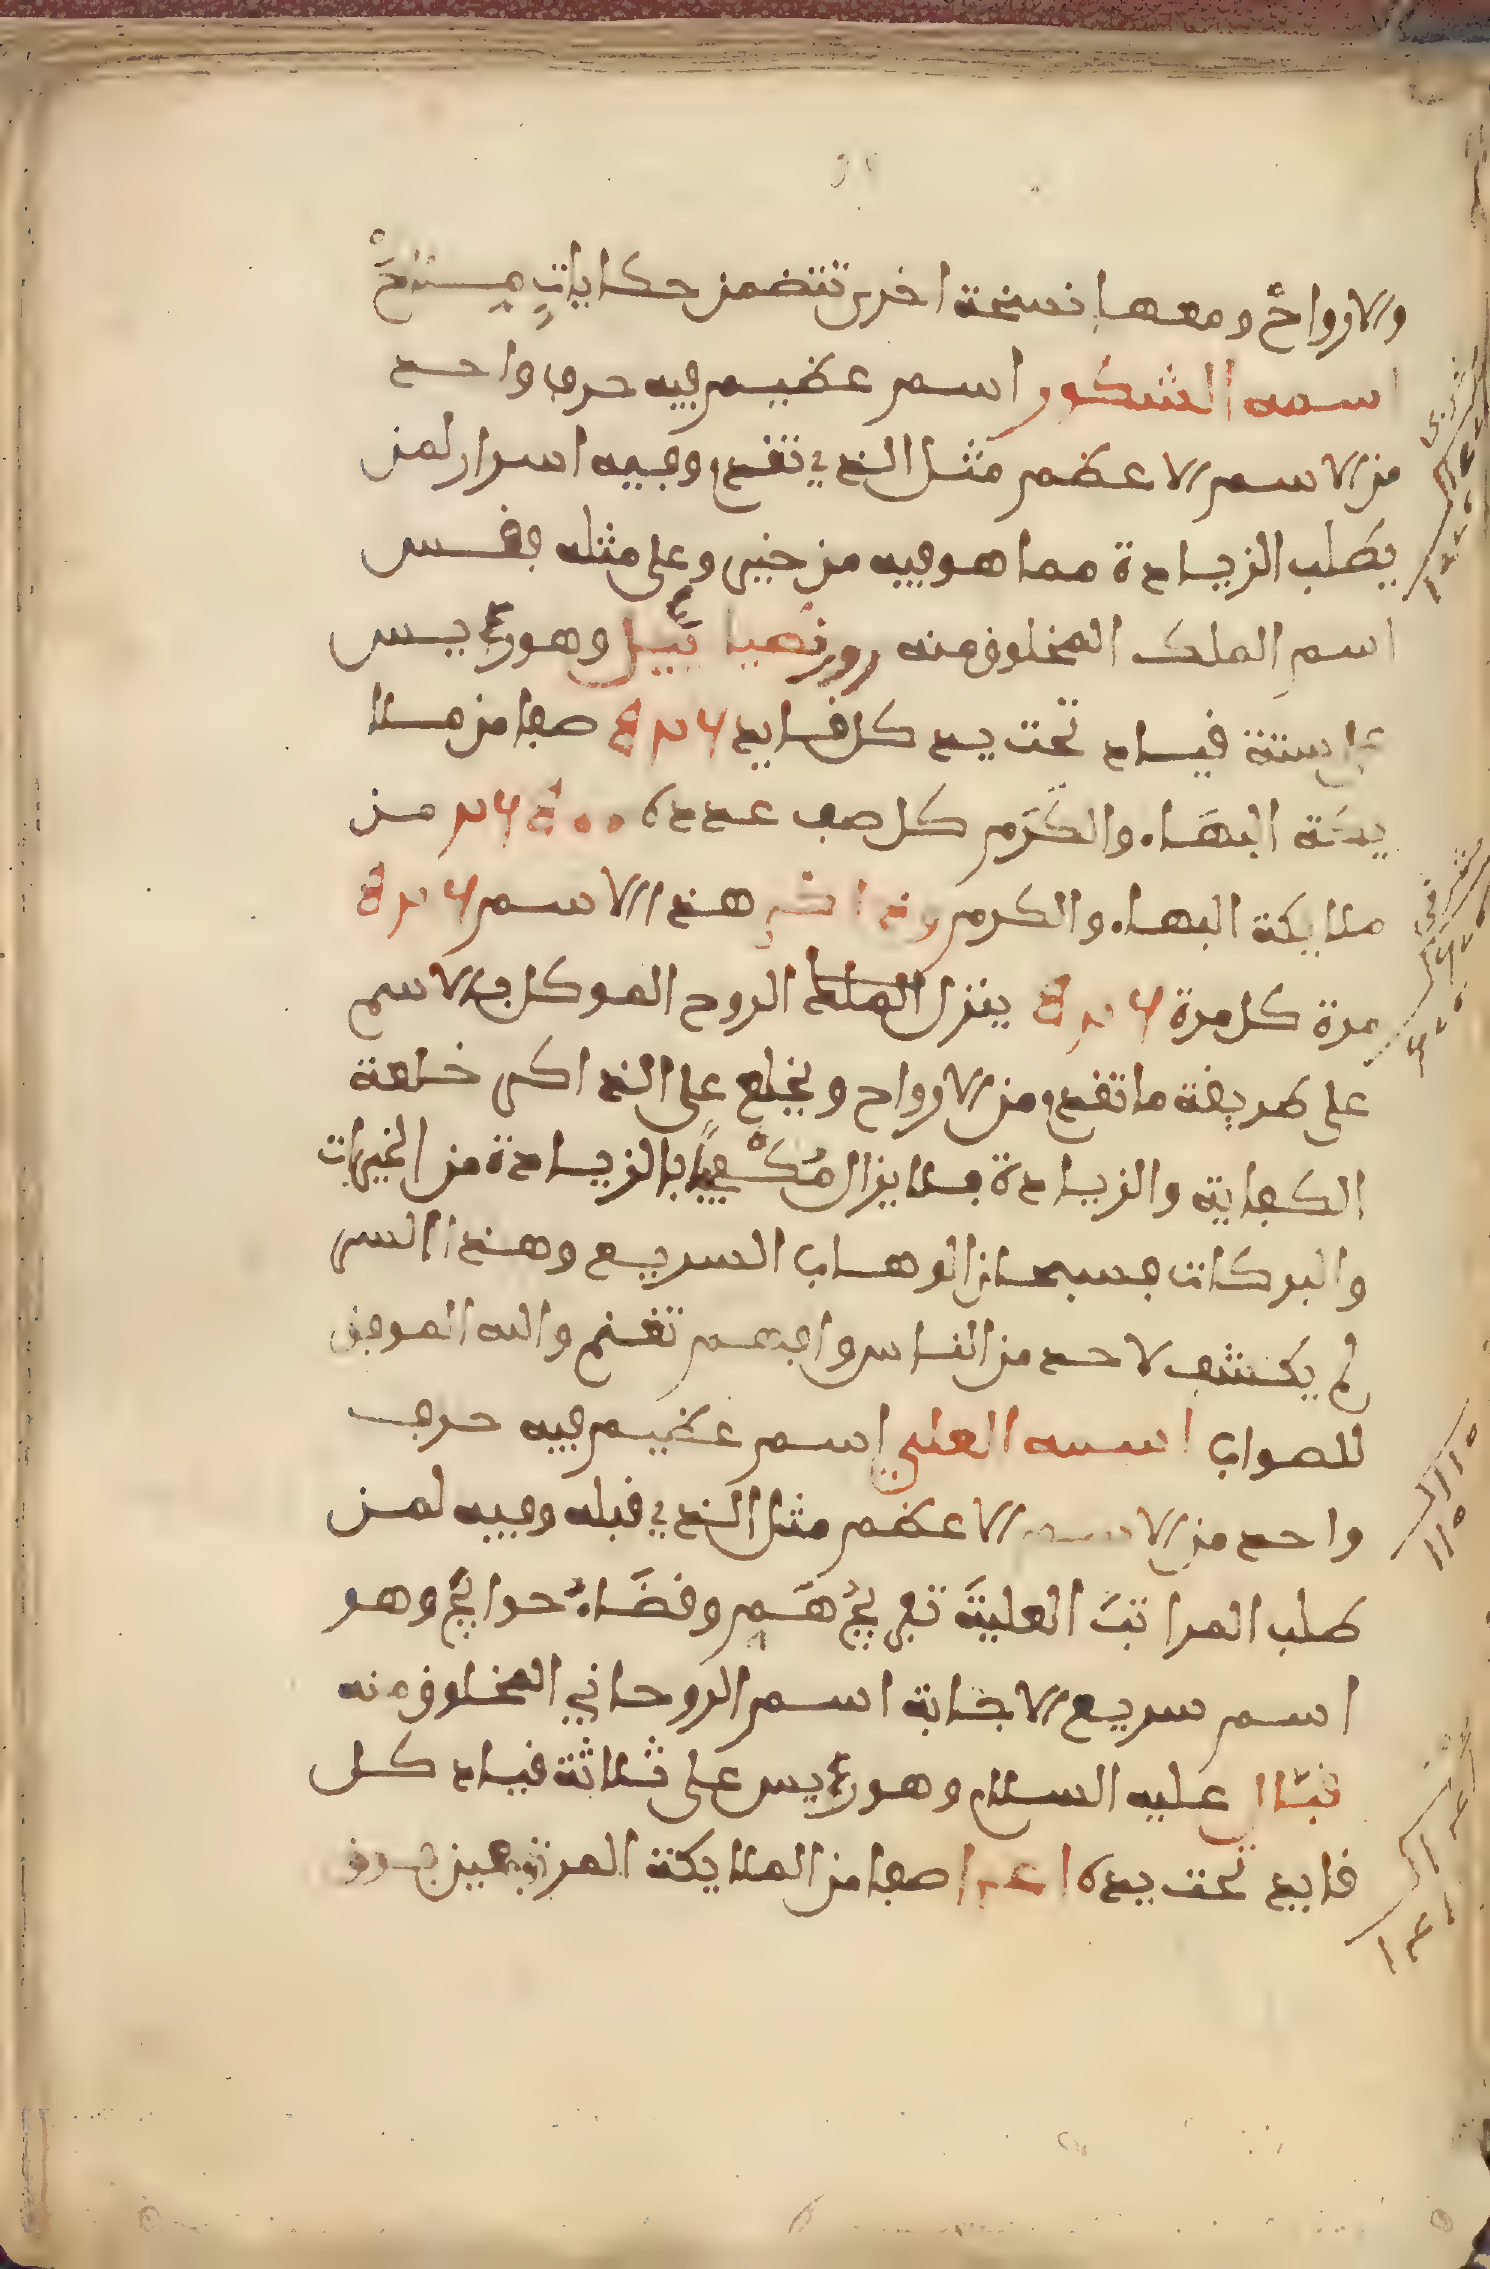 والارواح ومعها نسخة اخرى تتضمن حكايات مستملحة
اسمه الشكور اسم عظيم فيه حرف واحد
من الاسم الاعظم مثل الذي تقدم وفيه اسرار لمن
يطلب الزيادة مما هو فيه من خير وعلى مثله فقس
اسم الملك المخلوق منه وهو رئيس
على ستة قياد تحت يد كل قايد صفا من ملا
يكة البهاء والكرم كل صف عدده من
ملايكة البهاء والكرم وذاكر هذا الاسم
مرة كل مرة ينزل الملك الروح الموكل بالاسم
على طريقة ما تقدم من الارواح ويخلع على الذاكر خلعة
الكفاية والزيادة فلا يزال مكفيا بالزيادة من الخيرات
والبركات فسبحان الوهاب السريع وهذا السر
لم يكشف لاحد من الناس وافهم تغنم والله الموفق
للصواب اسمه العلي اسم عظيم فيه حرف
واحد من الاسم الاعظم مثل الذي قبله وفيه لمن
طلب المراتب العلية تفريج هم وقضاء حوايج وهو
اسم سريع الاجابة اسم الروحاني المخلوق منه
عليه السلام وهو رئيس على ثلاثة قياد كل
قايد تحت يده صفا من الملايكة المرتفعين